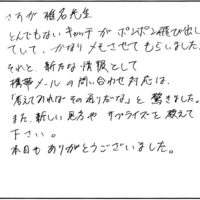 さすが 椎名先生
とんでもないキャッチが ポンポン飛び出し
てして、かなりメモさせてもらいました。
それと、新たな情報として
携帯メールの問い合わせ対応は、
「考えてみれば その通りだな」と 驚きました。
また、新しい見方や サプライズを 教えて
下さい。
本日も ありがとうございました。